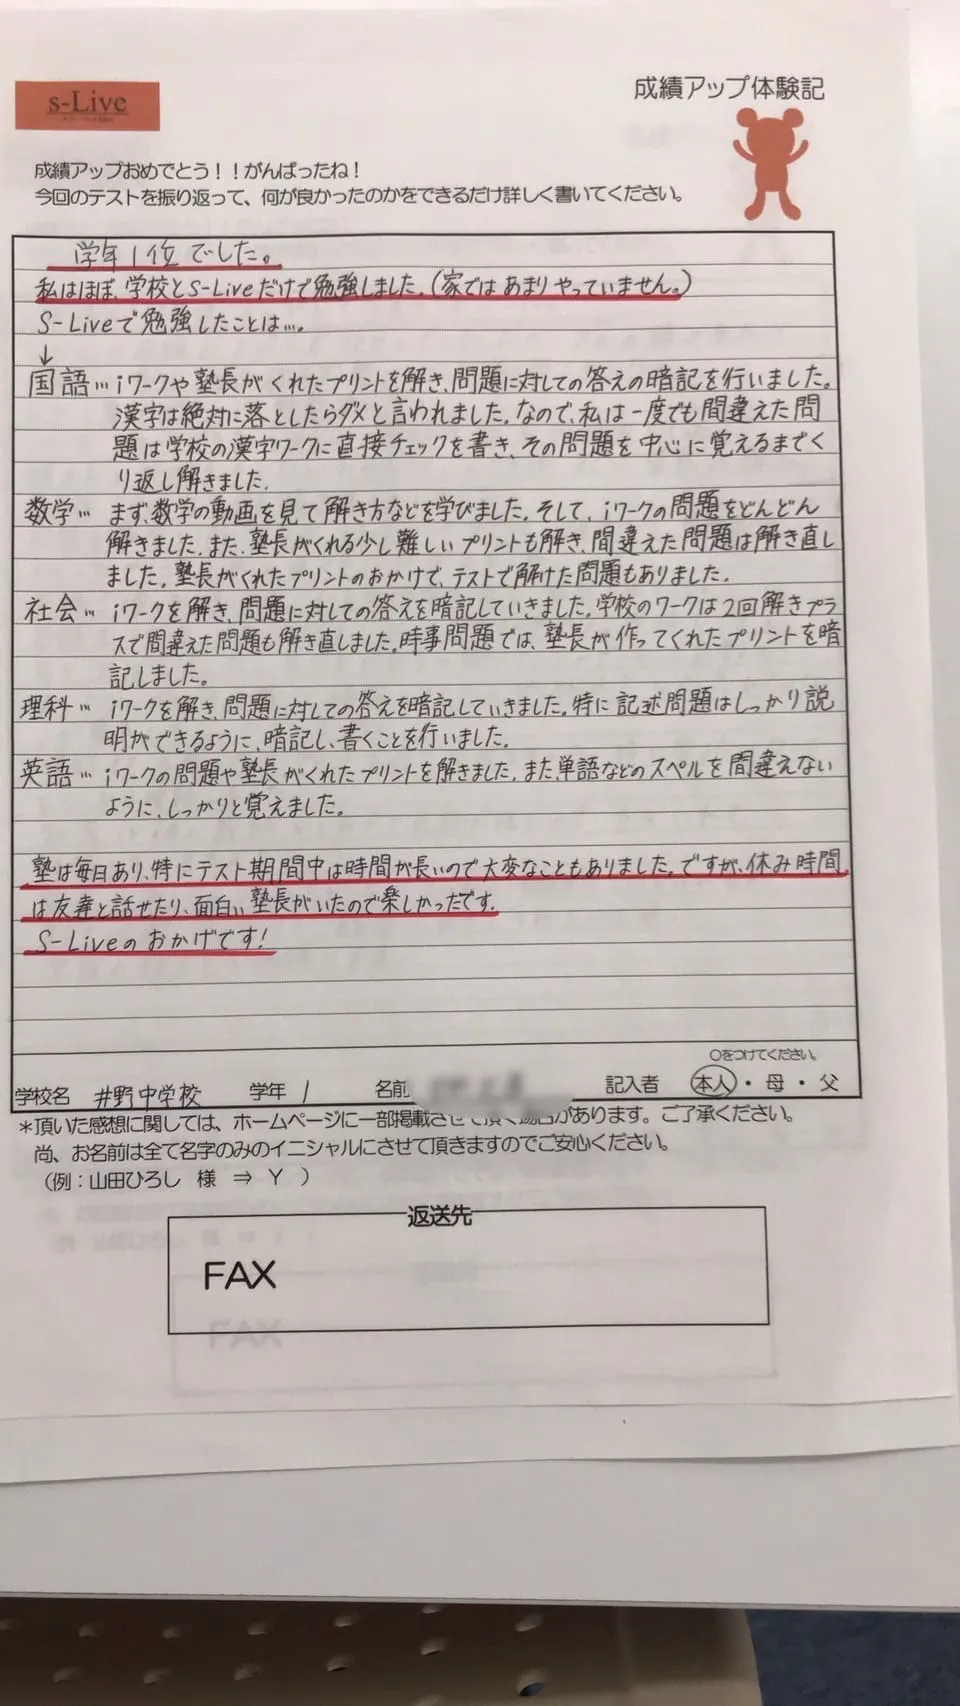 s-Live
成績アップ体験記
成績アップおめでとう！！がんばったね！
今回のテストを振り返って、何が良かったのかをできるだけ詳しく書いてください。
学年1位でした。
私はほぼ、学校とS-Liveだけで勉強しました。(家ではあまりやっていません。)
S-Liveで勉強したことは…。
↓
国語…iワークや塾長がくれたプリントを解き、問題に対しての答えの暗記を行いました。
漢字は絶対に落としたらダメと言われました。なので、私は一度でも間違えた問
題は学校の漢字ワークに直接チェックを書き、その問題を中心に覚えるまでく
り返し解きました。
数学… まず、数学の動画を見て解き方などを学びました。そして、iワークの問題をどんどん
解きました。また、塾長がくれる少し難しいプリントも解き、間違えた問題は解き直し
ました。塾長がくれたプリントのおかけで、テストで解けた問題もありました。
社会… iワークを解き、問題に対しての答えを暗記していきました。学校のワークは2回解きプラ
スで間違えた問題も解き直しました。時事問題では、塾長が作ってくれたプリントを暗
記しました。
理科… iワークを解き、問題に対しての答えを暗記していきました。特に記述問題はしっかり説
明ができるように、暗記し、書くことを行いました。
英語… iワークの問題や塾長がくれたプリントを解きました。また単語などのスペルを間違えない
ように、しっかりと覚えました。
塾は毎日あり、特にテスト期間中は時間が長いので大変なこともありました。ですが、休み時間
は友達と話せたり、面白い塾長がいたので楽しかったです。
S-Liveのおかげです!
○をつけてください。
学校名 井野中学校 学年 1 名前 記入者 本人・母・父
＊頂いた感想に関しては、ホームページに一部掲載させて頂く場合があります。ご了承ください。
尚、お名前は全て名字のみのイニシャルにさせて頂きますのでご安心ください。
（例：山田ひろし 様 ⇒ Y ）
返送先
FAX